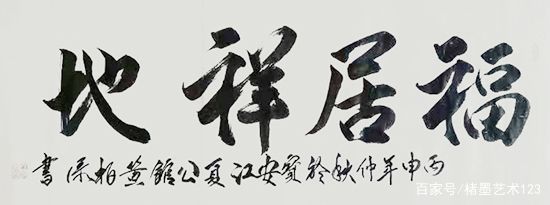 福居祥地
丙申年仲秋於寶安江夏公館黄柏添書
百家号/楮墨艺术123